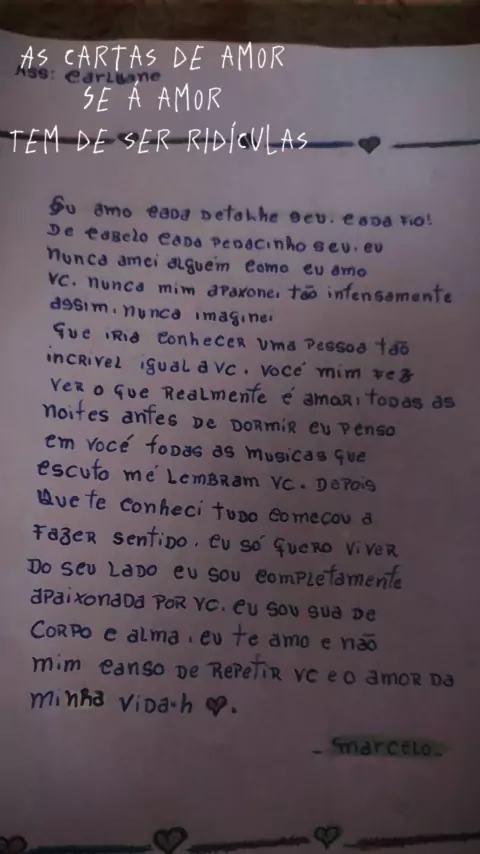 AS CARTAS DE AMOR
Ass: Carluane
SE Á AMOR
TEM DE SER RIDÍCULAS
Eu amo cada Detalhe seu. cada fio!
De cabelo cada pedacinho seu. eu
nunca amei alguem como eu amo
vc. nunca mim apaxonei tão intensamente
assim. nunca imaginei
que iria conhecer uma pessoa tão
incrivel igual a vc. você mim fez
ver o que realmente é amar. todas as
noites antes de dormir eu penso
em você todas as musicas que
escuto me lembram vc. Depois
que te conheci tudo começou a
fazer sentido. eu só quero viver
Do seu lado eu sou completamente
apaixonada por vc. eu sou sua de
corpo e alma. eu te amo e não
mim canso de repetir vc e o amor da
minha vida-h ♥.
- marcelo-